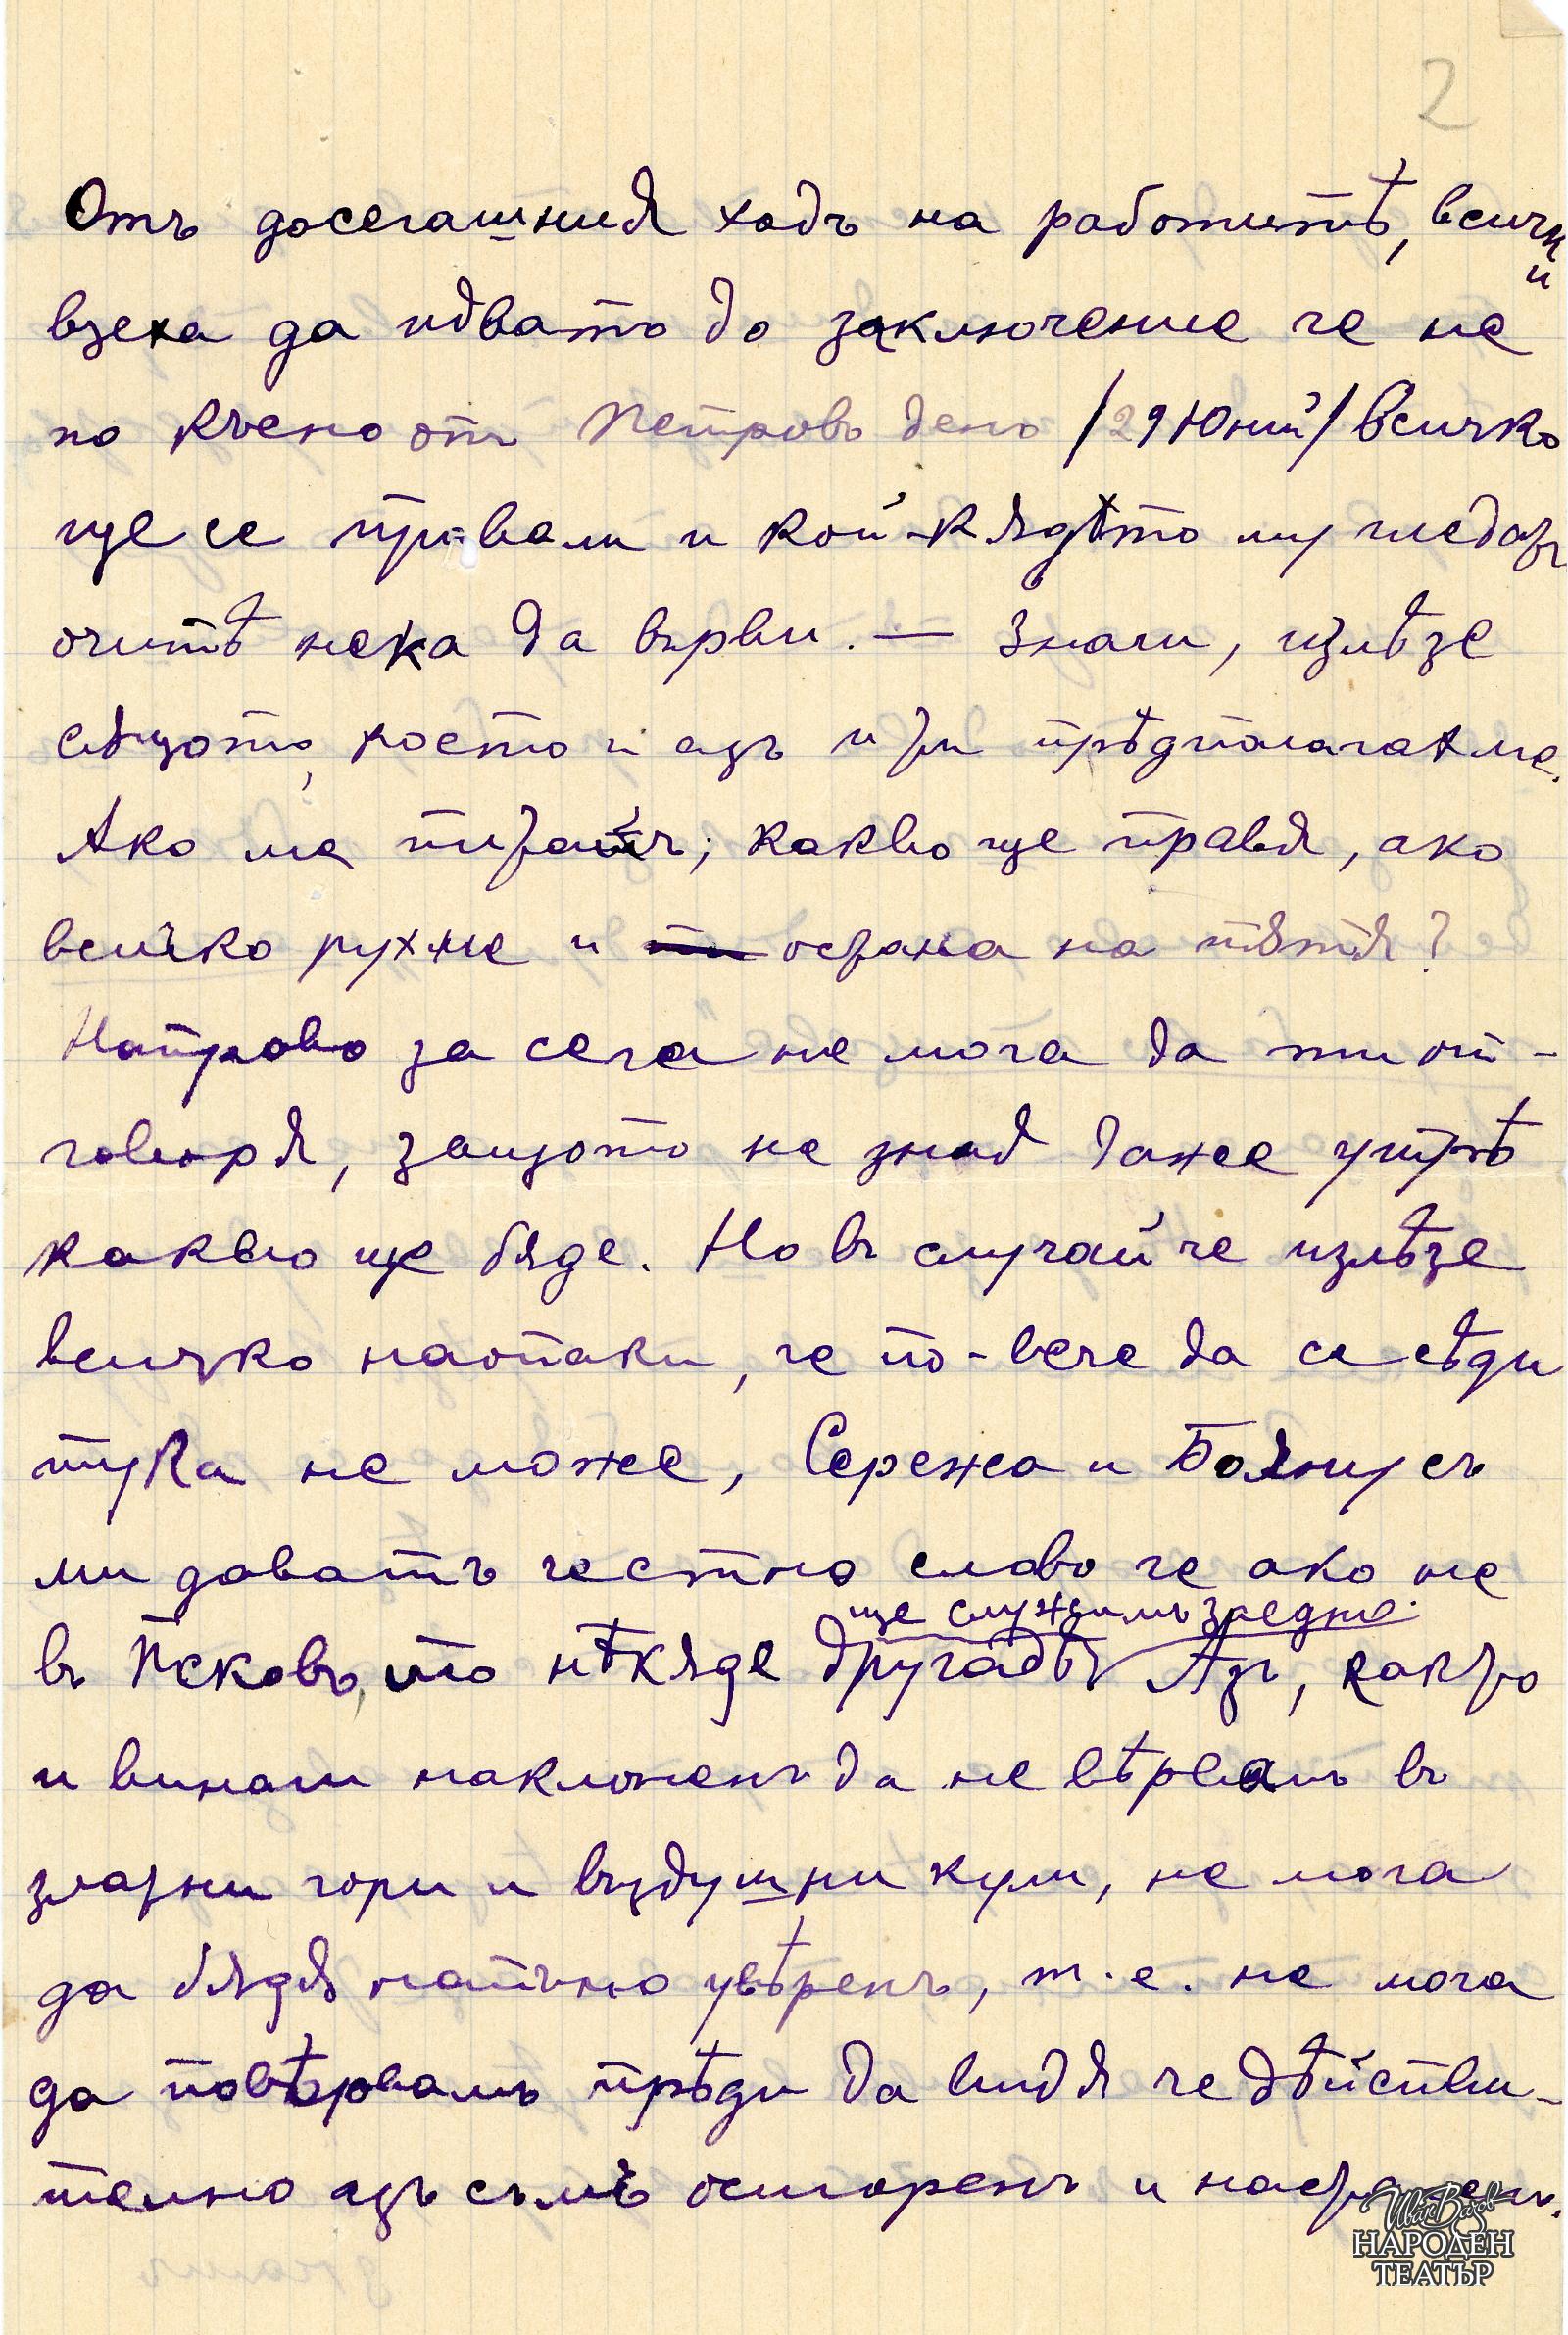 2
Отъ досегашния ходъ на работитѣ, всички
взеха да идватъ до заключение че не
по късно отъ Петровъ день /29 Юний/ всичко
ще се провали и кой-кѫдѣто му гледатъ
очитѣ нека да върви. — Значи, излѣзе
сѫщото, което и азъ и ти прѣдполагахме.
Ако ме питашъ; какво ще правя, ако
всичко рухне и остана на пѫтя?
Направо за сега не мога да ти от-
говоря, защото не зная даже утрѣ
какво ще бѫде. Но въ случай че излѣзе
всичко наопаки, че по-вече да се сѣди
тука не може, Сережа и Боянусъ
ми даватъ честно слово че ако не
ще служимъ заедно.
въ Псковъ, то нѣкѫде другадѣ Азъ, както
и винаги наклоненъ да не вѣрвамъ въ
златни гори и въздушни кули, не мога
да бѫдя напълно увѣренъ, т.е. не мога
да повѣрвамъ прѣди да видя че дѣйстви-
телно азъ съмъ осигоренъ и настаненъ.
Иван Вазов
НАРОДЕН
ТЕАТЪР